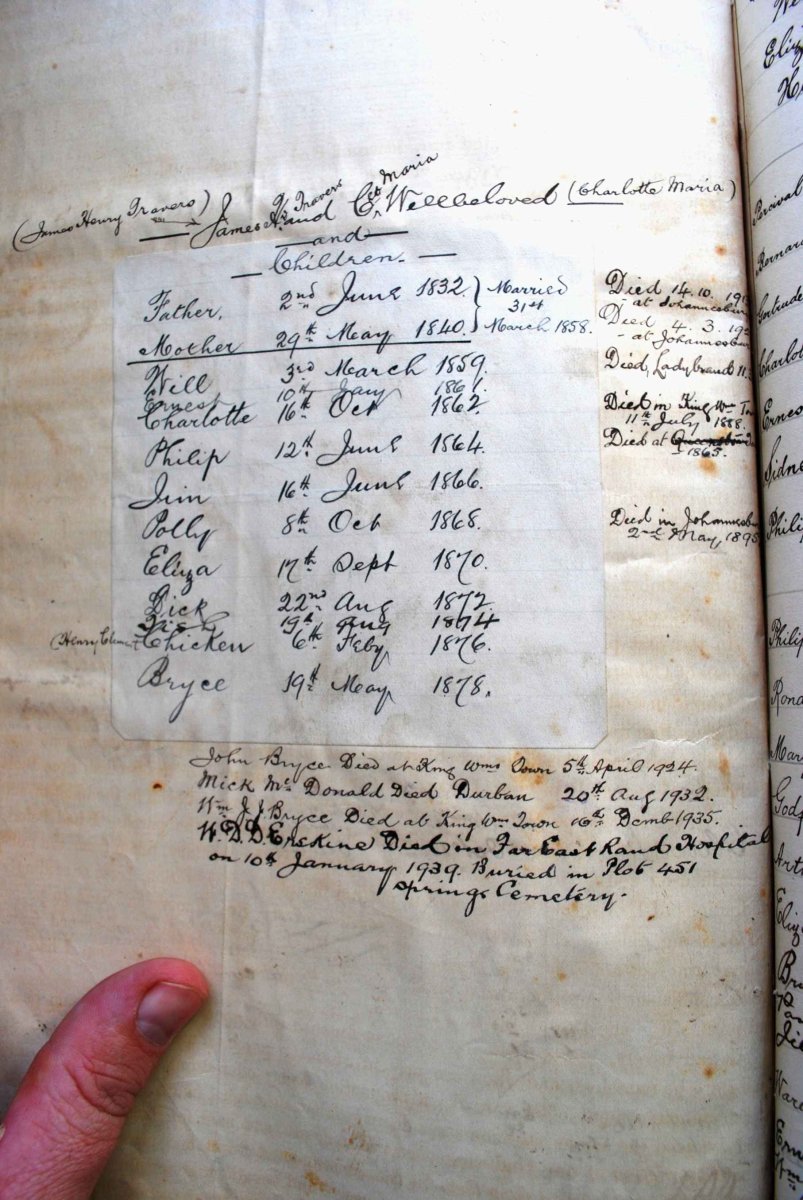 (James Henry Travers) James Hy. Travers and Ctte Maria Wellbeloved (Charlotte Maria)
and
Children.
Father, 2nd June 1832. } Married Died 14.10.
31st - at Johannesburg
Mother 29th May 1840. } March 1858. Died 4.3.
- at Johannesburg
Will 3rd March 1859. Died, Ladybrand
Ernest 10th Jany 1861.
Charlotte 16th Oct 1862. Died in King Wm Town
11th July 1888.
Philip 12th June 1864. Died at
1865.
Jim 16th June 1866.
Polly 8th Oct 1868. Died in Johannesburg
2nd May, 1895
Eliza 17th Sept 1870.
Dick 22nd Aug 1872.
19th Aug 1874
(Henry Clement) Chicken 6th Feby 1876.
Bryce 19th May 1878.
John Bryce Died at King Wms Town 5th April 1924.
Mick Mc Donald Died Durban 20th Aug 1932.
Wm J. J. Bryce Died at King Wm Town 16th Dcmb 1935.
W. D. D. Erskine Died in Far East Rand Hospital
on 10th January 1939. Buried in Plot 451
Springs Cemetery.
Eliz
Percival
Bernard
Gertrude
Charlot
Ernes
Sidne
Phili
Philip
Rona
Mar
Godf
Art
Eliz
Br